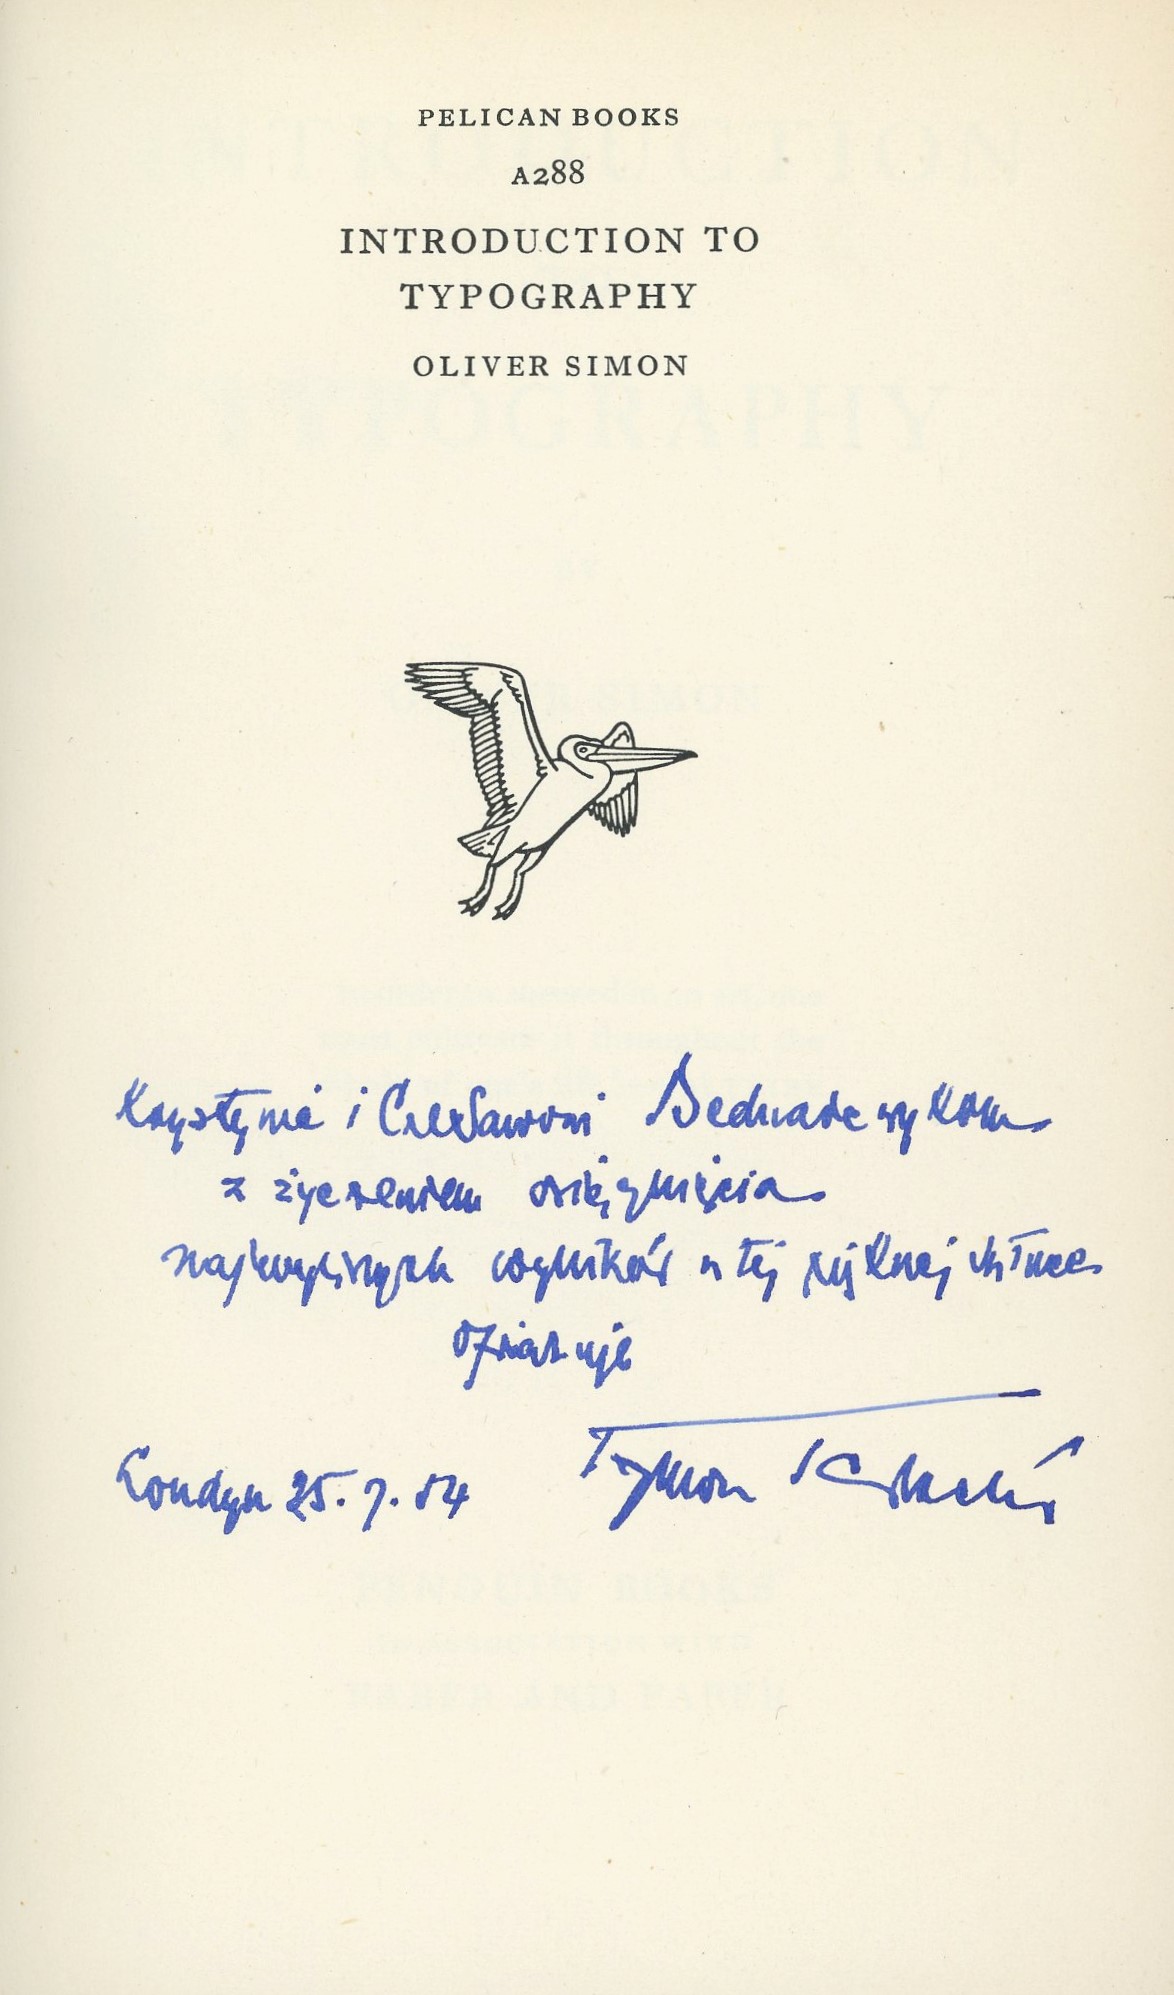 PELICAN BOOKS
A288
INTRODUCTION TO
TYPOGRAPHY
OLIVER SIMON
Krystynie i Czesławowi Bednarczykom
z życzeniem osiągnięcia
najwyższych wyników w tej pięknej sztuce
ofiaruje
Tymon
Londyn 25. 7. 54